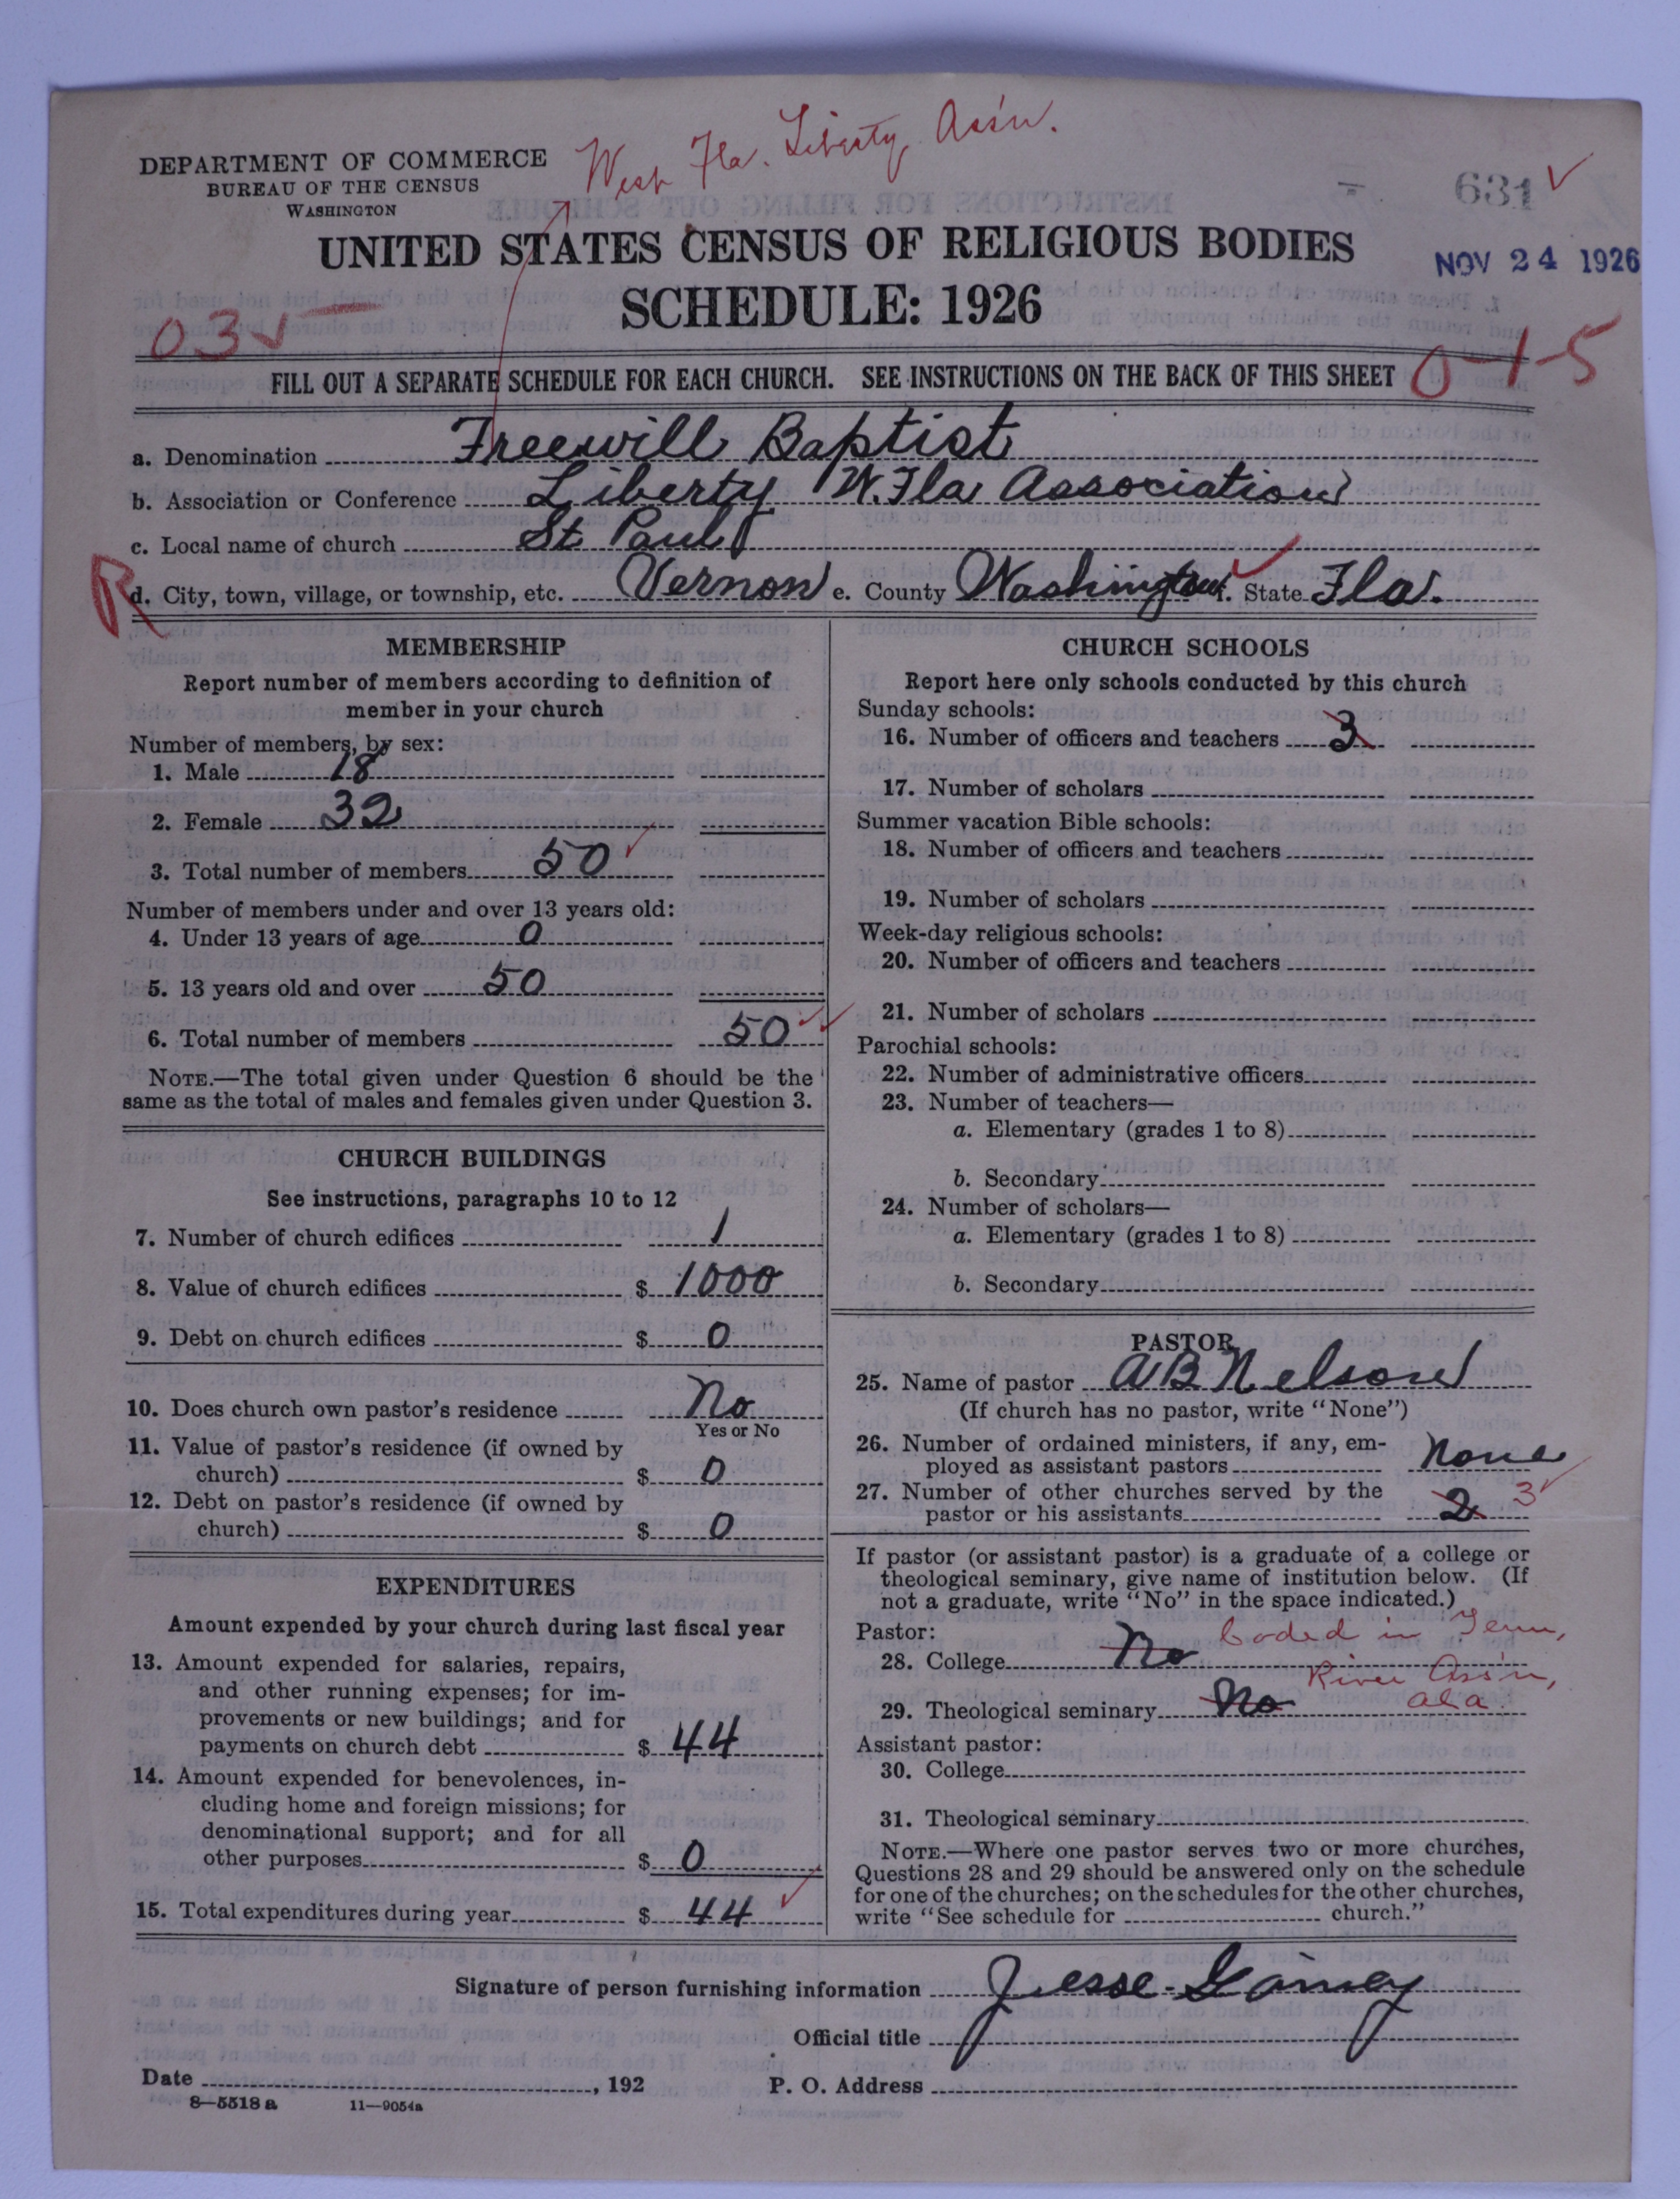 West Fla. Liberty Ass'n.
DEPARTMENT OF COMMERCE
BUREAU OF THE CENSUS
WASHINGTON
631
UNITED STATES CENSUS OF RELIGIOUS BODIES
NOV 24 1926
SCHEDULE: 1926
03
0-1-5
FILL OUT A SEPARATE SCHEDULE FOR EACH CHURCH. SEE INSTRUCTIONS ON THE BACK OF THIS SHEET
a. Denomination Freewill Baptist
b. Association or Conference Liberty W. Fla Association
c. Local name of church St Paul
R
d. City, town, village, or township, etc. Vernon e. County Washington f. State Fla.
MEMBERSHIP
Report number of members according to definition of
member in your church
Number of members, by sex:
1. Male 18
2. Female 32
3. Total number of members 50
Number of members under and over 13 years old:
4. Under 13 years of age 0
5. 13 years old and over 50
6. Total number of members 50
NOTE.—The total given under Question 6 should be the
same as the total of males and females given under Question 3.
CHURCH BUILDINGS
See instructions, paragraphs 10 to 12
7. Number of church edifices 1
8. Value of church edifices $ 1000
9. Debt on church edifices $ 0
10. Does church own pastor's residence No
Yes or No
11. Value of pastor's residence (if owned by
church) $ 0
12. Debt on pastor's residence (if owned by
church) $ 0
EXPENDITURES
Amount expended by your church during last fiscal year
13. Amount expended for salaries, repairs,
and other running expenses; for im-
provements or new buildings; and for
payments on church debt $ 44
14. Amount expended for benevolences, in-
cluding home and foreign missions; for
denominational support; and for all
other purposes $ 0
15. Total expenditures during year $ 44
CHURCH SCHOOLS
Report here only schools conducted by this church
Sunday schools:
16. Number of officers and teachers 3
17. Number of scholars
Summer vacation Bible schools:
18. Number of officers and teachers
19. Number of scholars
Week-day religious schools:
20. Number of officers and teachers
21. Number of scholars
Parochial schools:
22. Number of administrative officers
23. Number of teachers—
a. Elementary (grades 1 to 8)
b. Secondary
24. Number of scholars—
a. Elementary (grades 1 to 8)
b. Secondary
PASTOR
25. Name of pastor A B Nelson
(If church has no pastor, write "None")
26. Number of ordained ministers, if any, em-
ployed as assistant pastors None
27. Number of other churches served by the
pastor or his assistants 2 3
If pastor (or assistant pastor) is a graduate of a college or
theological seminary, give name of institution below. (If
not a graduate, write "No" in the space indicated.)
Pastor: Coded in Tenn,
28. College No
River Ass'n,
29. Theological seminary No Ala.
Assistant pastor:
30. College
31. Theological seminary
NOTE.—Where one pastor serves two or more churches,
Questions 28 and 29 should be answered only on the schedule
for one of the churches; on the schedules for the other churches,
write "See schedule for church."
Signature of person furnishing information Jesse Gainey
Official title
Date , 192 P. O. Address
8—5518 a 11—9054a